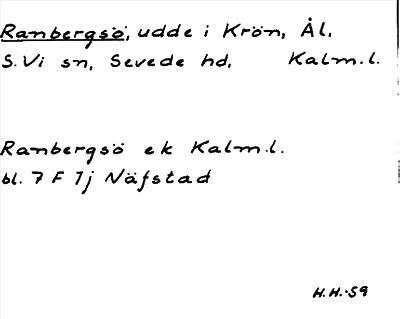 Ranbergsö, udde i Krön, Ål,
S. Vi sn, Sevede hd, Kalm. l.
Ranbergsö ek Kalm. l.
bl. 7 F 1j Näfstad
H. H. -59